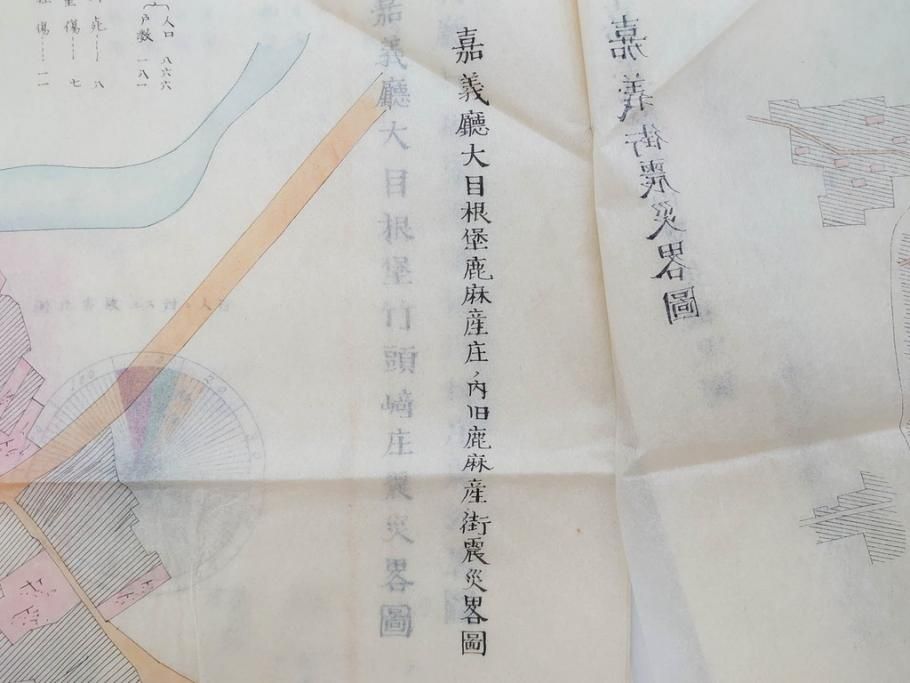 嘉義街震災畧圖
嘉義廳大目根堡鹿麻産庄ノ内旧鹿麻産街震災畧圖
嘉義廳大目根堡竹頭﨑庄震災畧圖
人口 八六六
戸數 一八一
死 八
傷 七
傷 一一